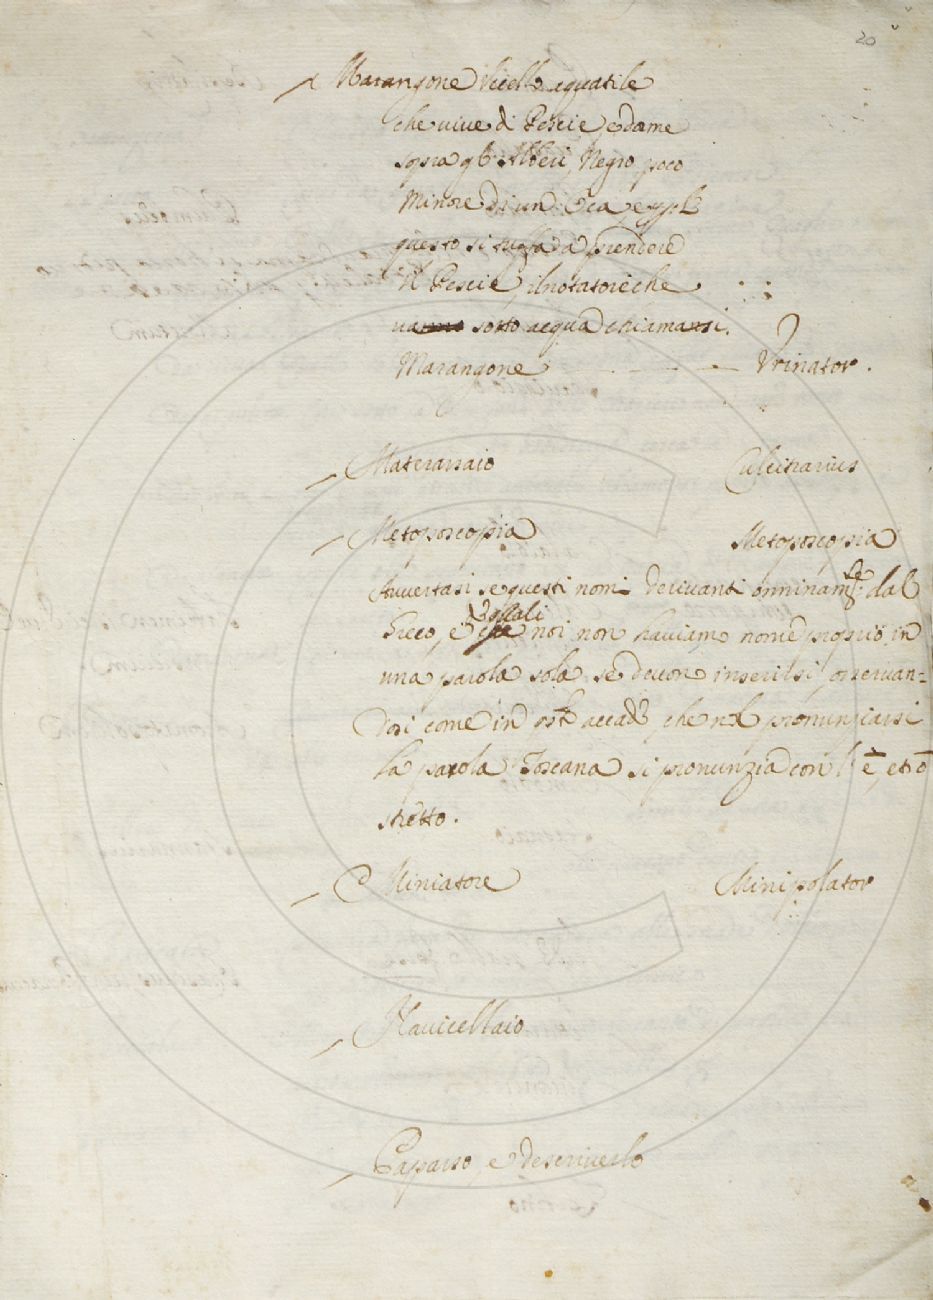 20
Marangone Vccello aquatile
che uiue di Pescie, e dorme
sopra gl'Alberi, Negro poco
Minore di un Oca, e
questo si tuffa à prendere
il Pescie, i Notatori che
uanno sotto acqua chiamansi
Marangone Vrinator.
Materassaio Culcitrarius
Metoposcopia Metoposcopia
Auuertasi se questi nomi deriuanti onninamte dal
Greco, e che quali noi non hauiam nome proprio in
una parola sola se deuon inserirsi, osseruan=
dosi come in qsto accade che nel pronunziarsi
la parola Toscana si pronunzia con l'è, et ò
stretto.
Miniatore Minipolator
Nauicellaio
Papasso, e descriuerlo